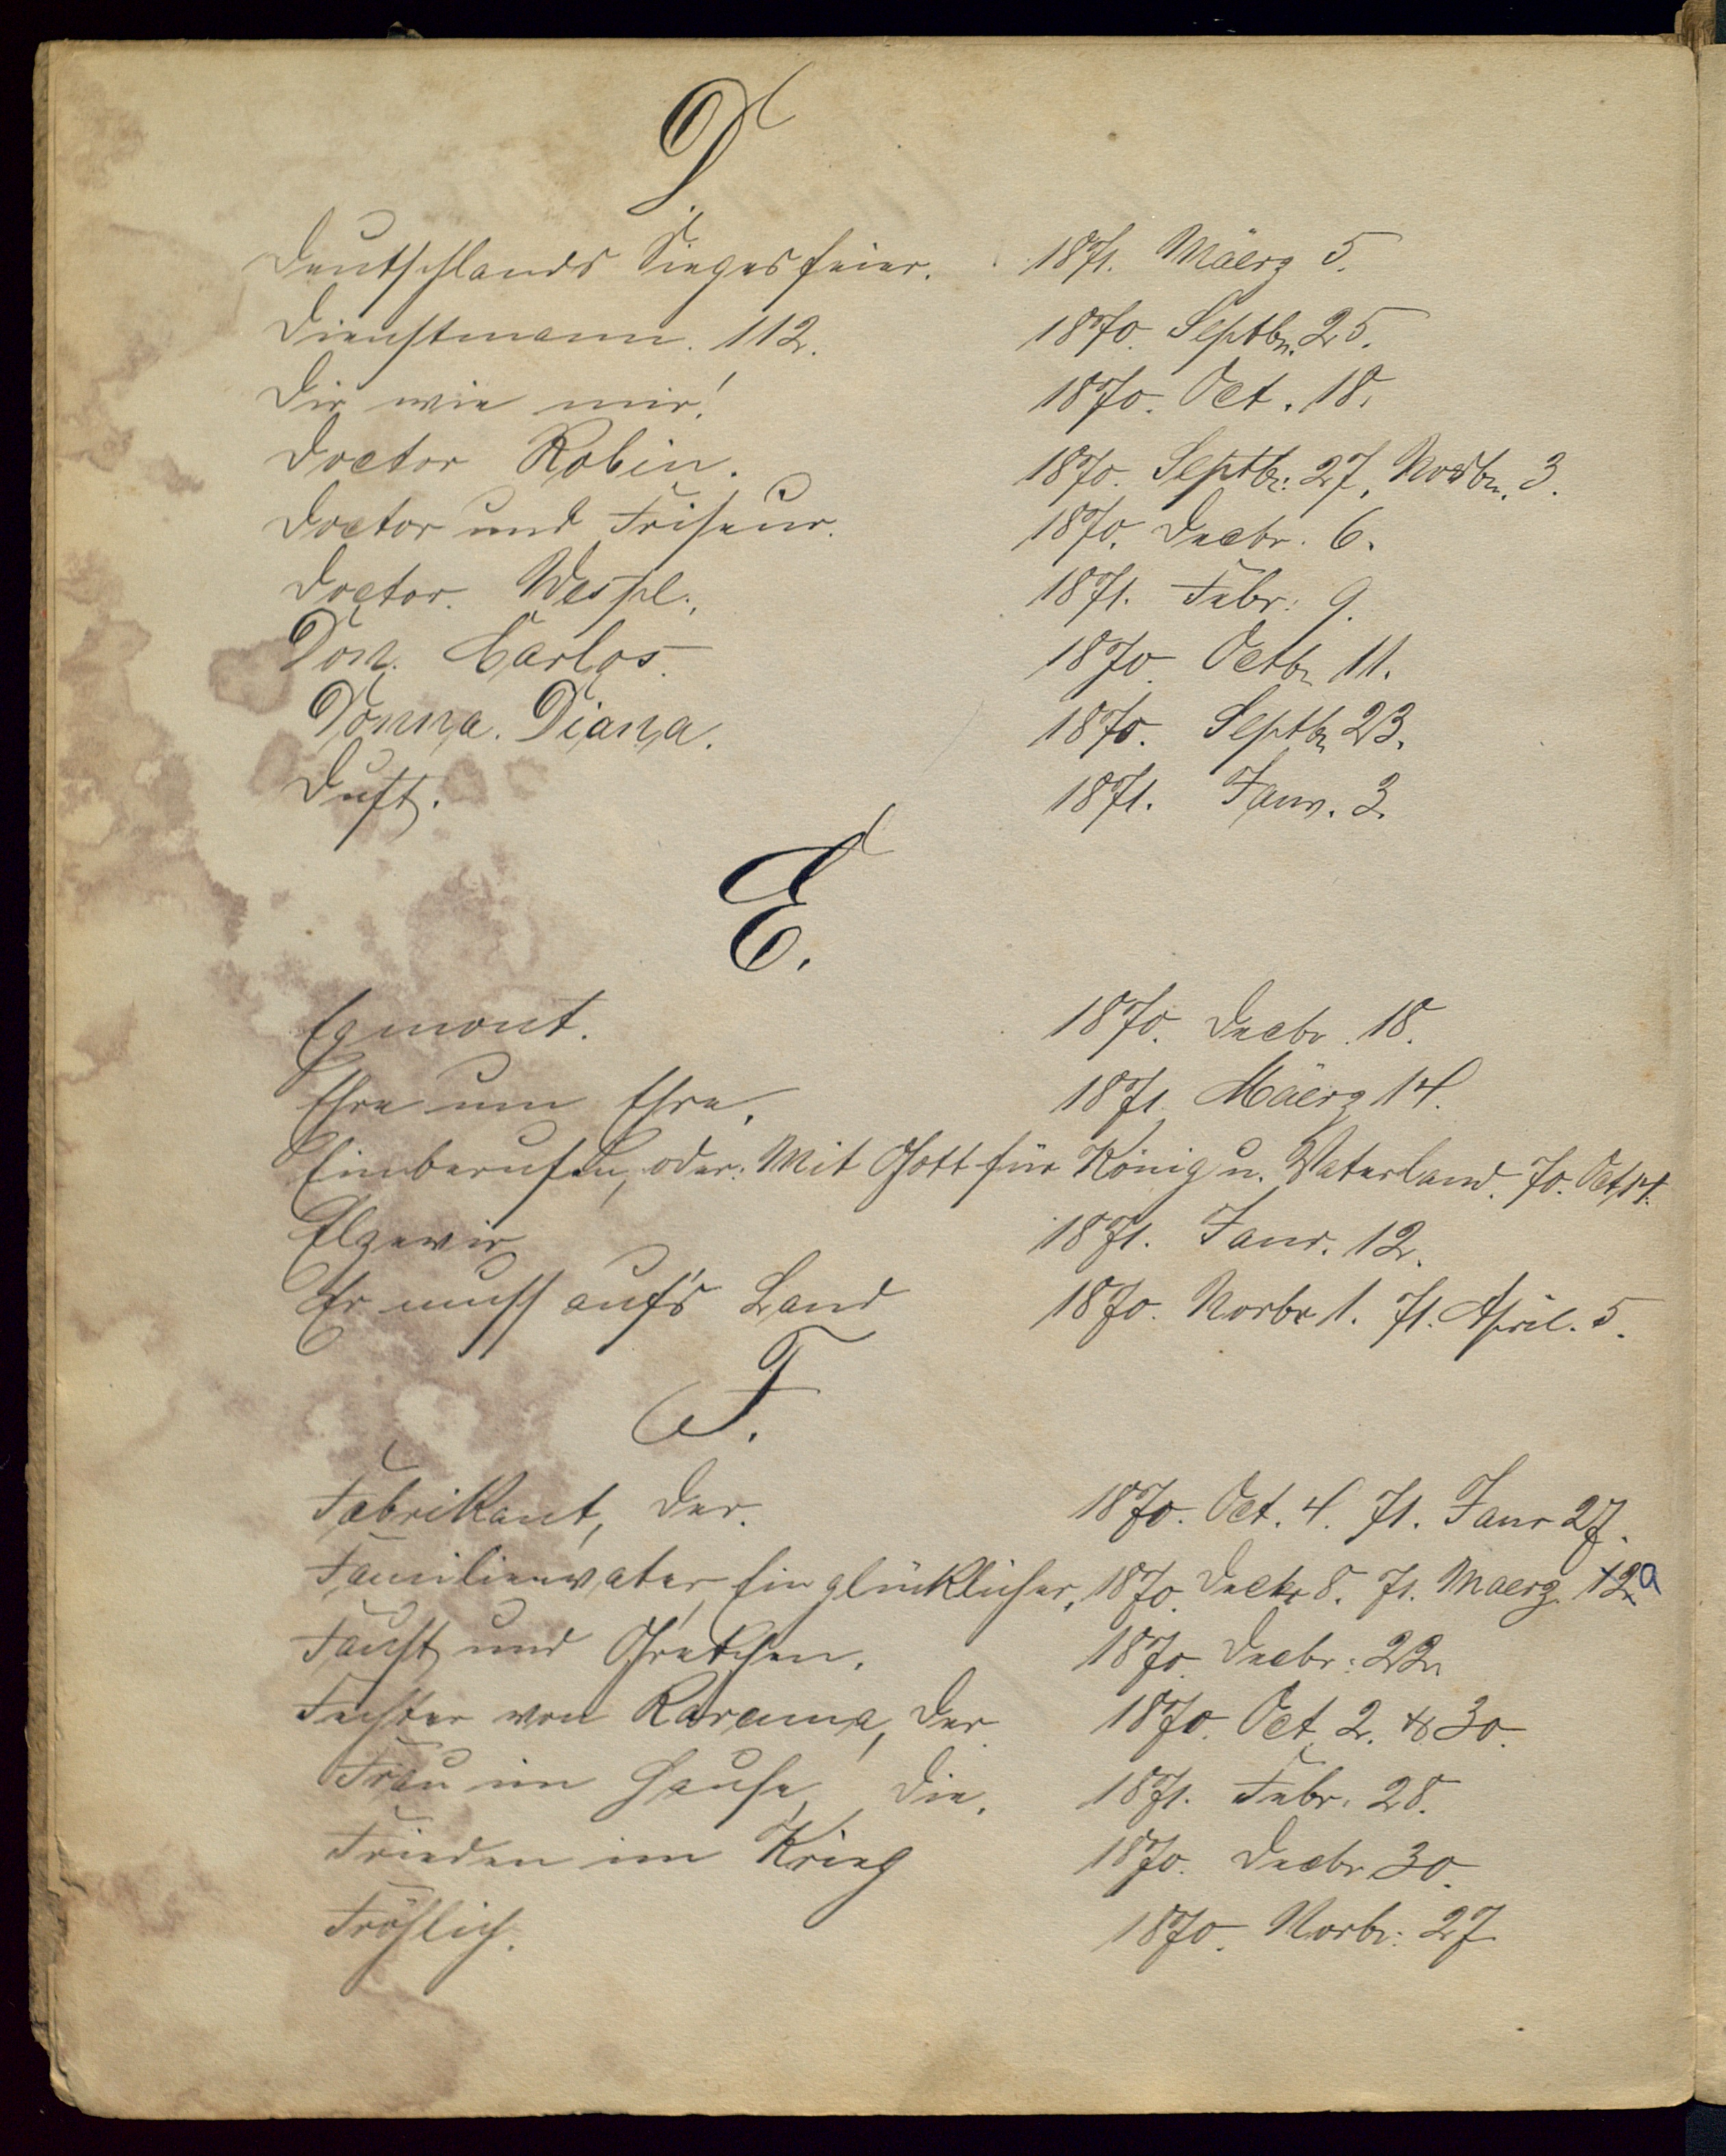 D.
Deutschlands Siegesfeier. 1871. Mäerz 5.
Dienstmann. 112. 1870. Septbr. 25.
Dir wie mir! 1870. Oct. 18.
Doctor Robin. 1870. Septbr: 27, Novbr. 3.
Doctor und Friseur. 1870. Decbr. 6.
Doctor. Wespe. 1871. Febr: 9.
Don. Carlos. 1870. Octbr 11.
Donna. Diana. 1870. Septbr 23.
Duft. 1871. Janr. 3.
E.
Egmont. 1870. Decbr. 18.
Ehre um Ehre. 1871. Mäerz 14.
Einberufen, oder: Mit Gott für König u. Vaterland. 70. Oct 14.
Elzevir 1871. Janr. 12.
Er muss auf's Land 1870. Novbr 1. 71. April. 5.
F.
Fabrikant, Der. 1870. Oct. 4. 71. Janr 27.
Familienvater, Ein glücklicher. 1870. Decbr 8. 71. Maerz. 12 9
Faust und Gretchen. 1870. Decbr: 22.
Fechter von Ravenna, Der. 1870. Oct. 2. & 30.
Frau im Hause, Die. 1871. Febr. 28.
Frieden im Krieg 1870. Decbr 30.
Fröhlich. 1870. Novbr: 27